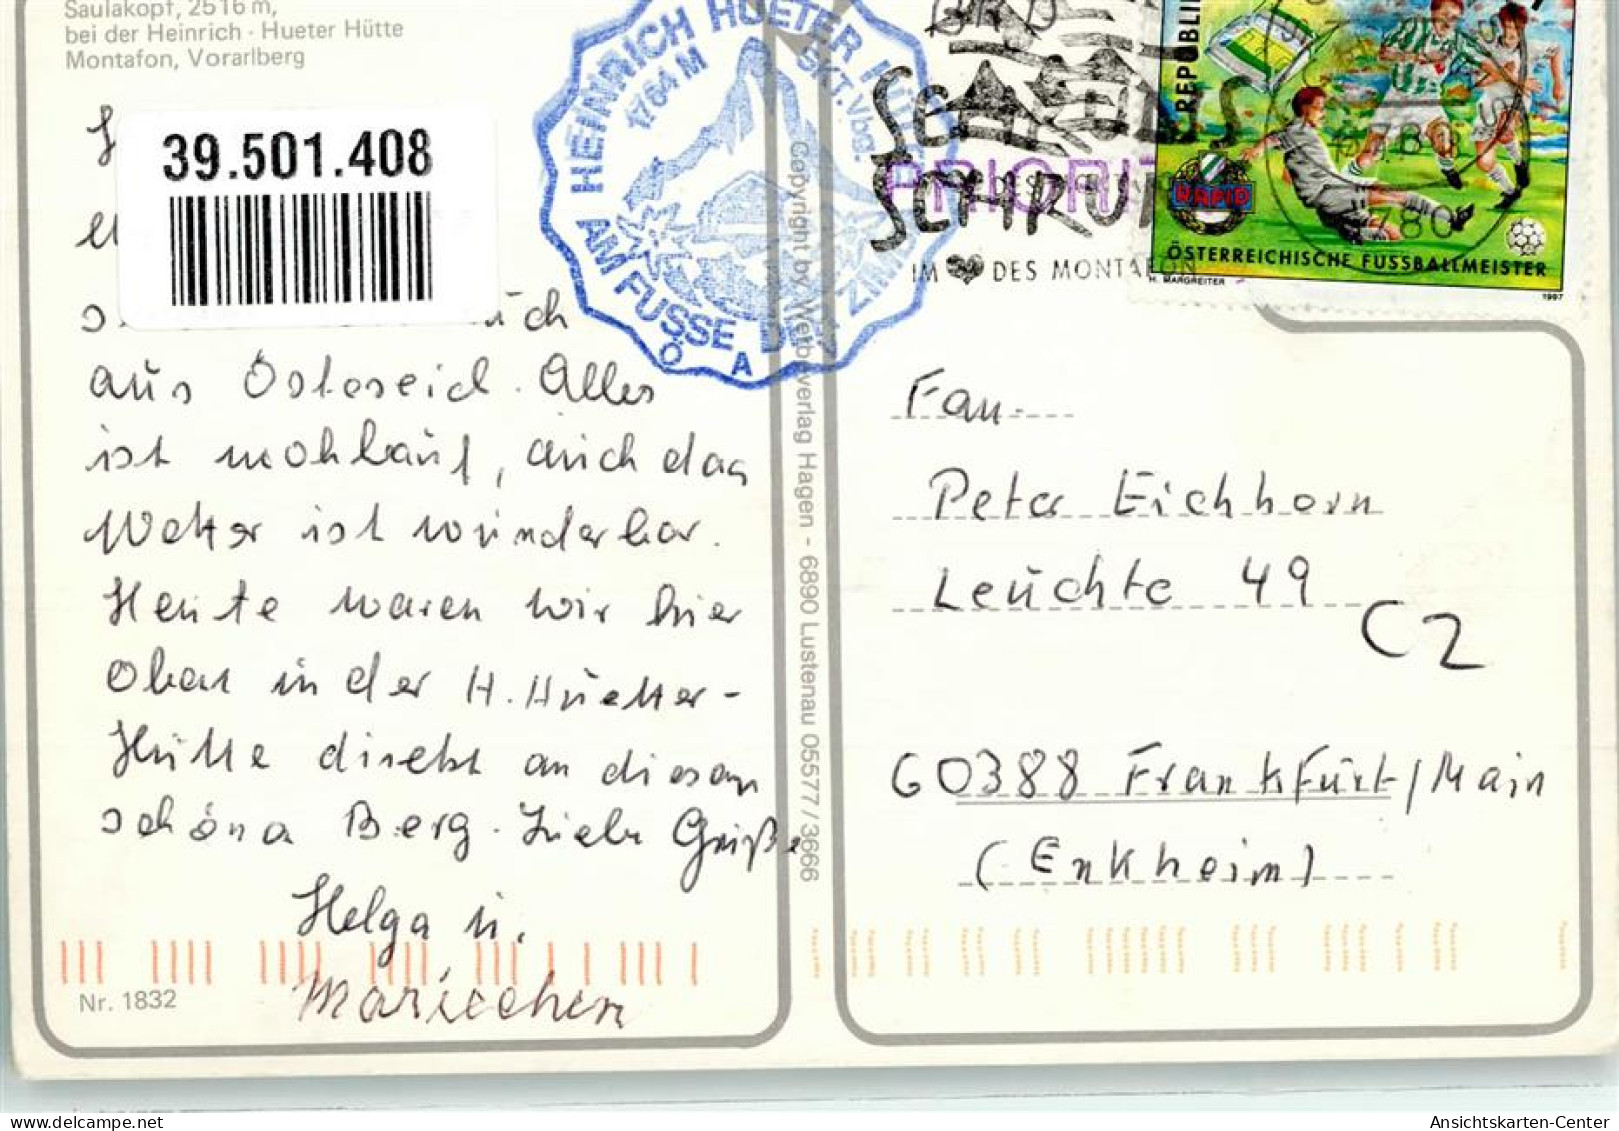 Saulakopf, 2516 m,
bei der Heinrich - Hueter Hütte
Montafon, Vorarlberg
39.501.408
aus Östereich. Alles
ist wohlauf, auch das
Wetter ist wunderbar.
Heute waren wir hier
Oben in der H. Huetter-
Hütte direkt an diesem
schönen Berg. Liebe Grüße
Helga u.
Mariechen
Nr. 1832
HEINRICH HUETER HÜTTE
1764 M
ÖKT. Vbg.
AM FUSSE DER ZIM
Ö A
Copyright by Wettbeverlag Hagen - 6890 Lustenau 05577/3666
PRIORIT
SCHRUNS
IM DES MONTAFON
REPUBLIK
RAPID
6780
ÖSTERREICHISCHE FUSSBALLMEISTER
H. MARGREITER
1997
Fam.
Peter Eichhorn
Leuchte 49
C2
60388 Frankfurt/Main
(Enkheim)
Ansichtskarten-Center